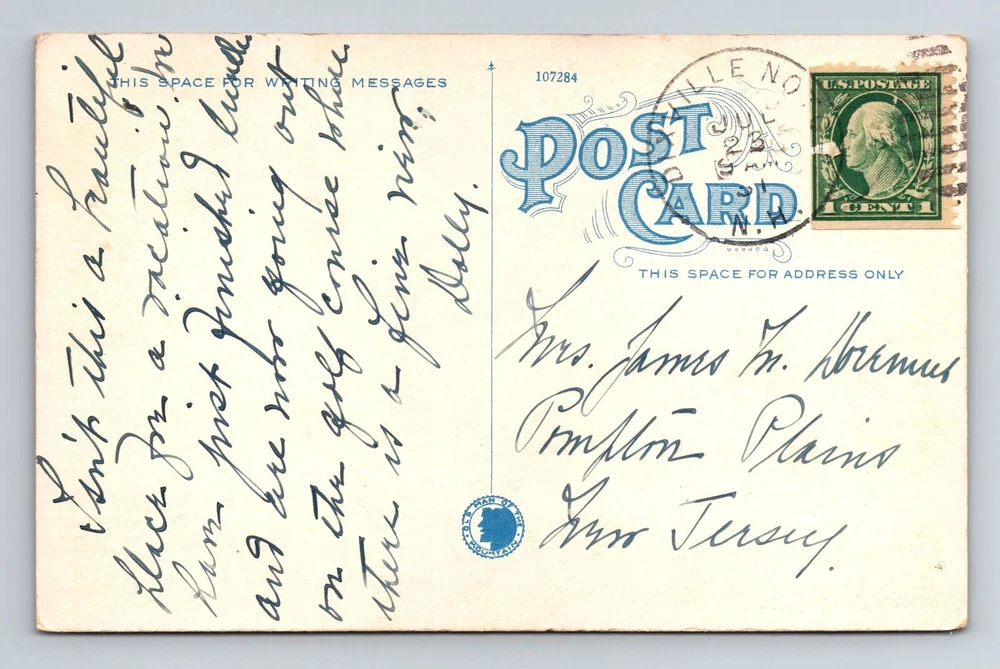 THIS SPACE FOR WRITING MESSAGES
Isn't this a beautiful
place for a vacation. We
have just finished lunch
and are now going out
on the golf course where
there is a fine view.
Dolly.
OLD MAN OF THE MOUNTAIN
107284
POST CARD
DIXVILLE NO
JUL
23
9 AM
N.H.
U.S. POSTAGE
1 CENT 1
THIS SPACE FOR ADDRESS ONLY
Mrs. James N. Doremus
Pompton Plains
New Jersey.